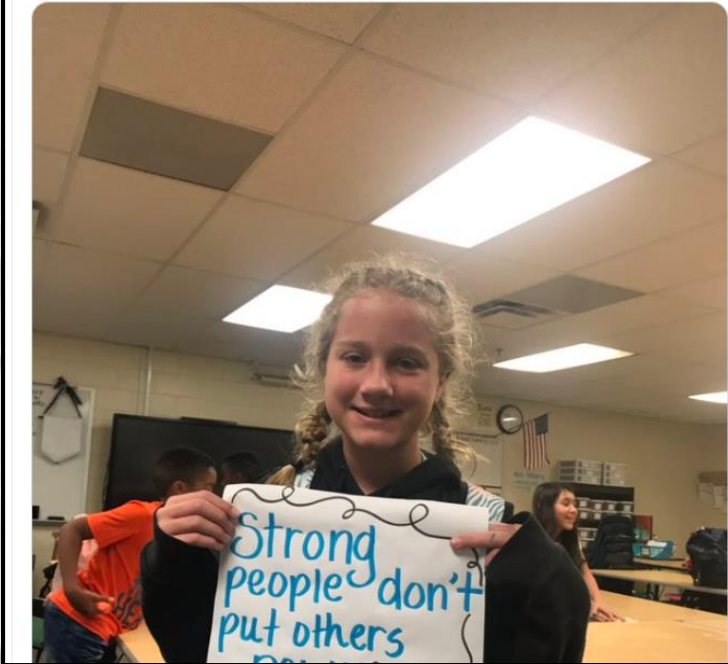 Strong
people don't
put others